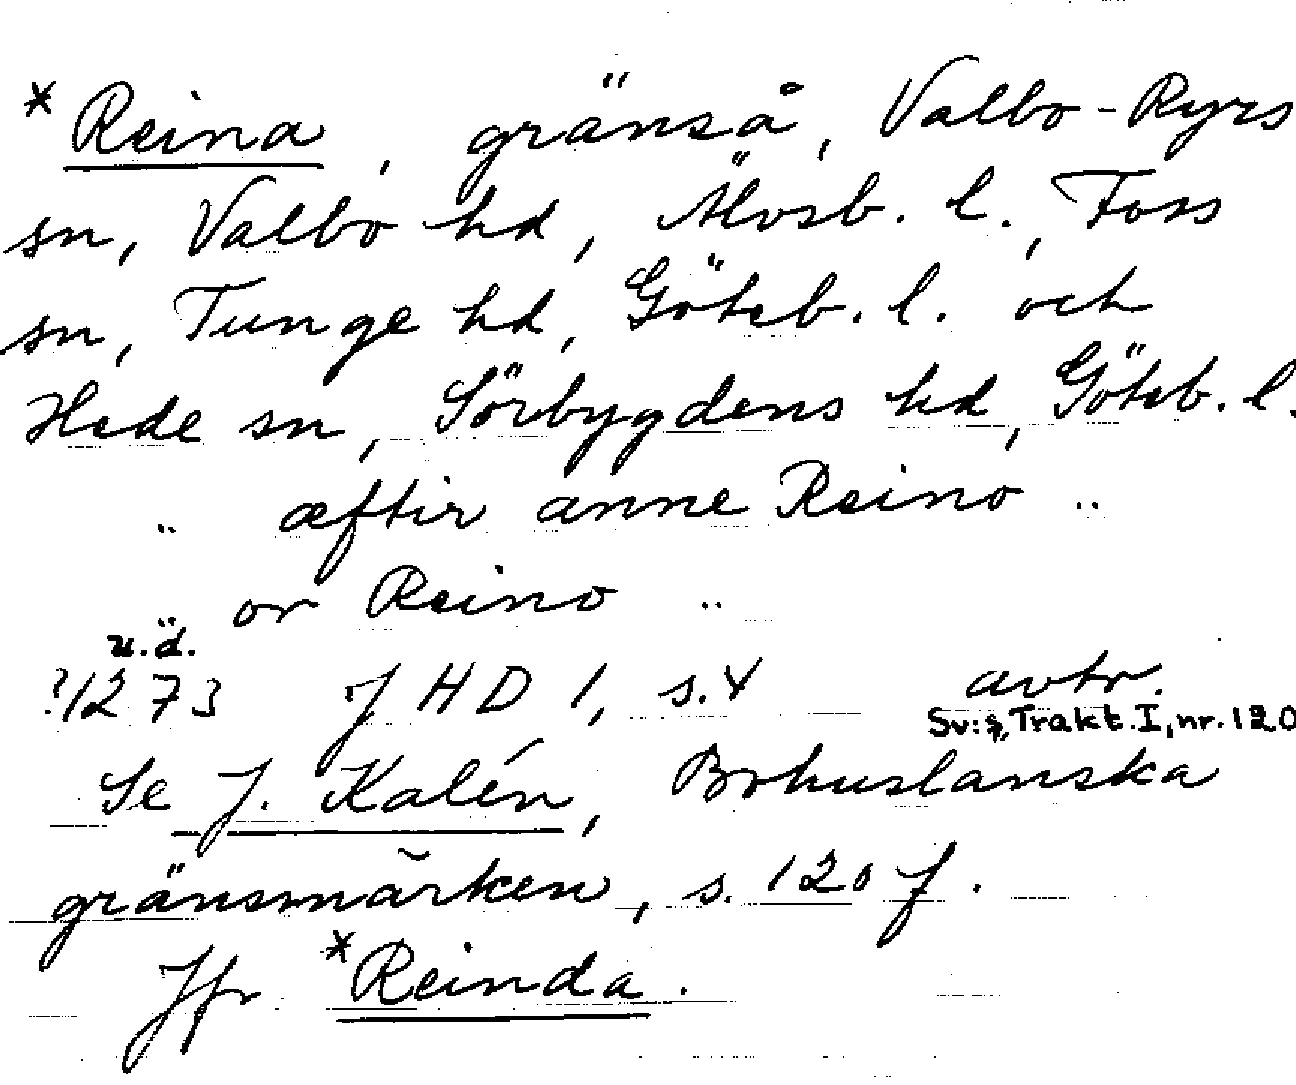 *Reina, gränså, Valbo-Ryrs
sn, Valbo hd, Älvsb. l., Foss
sn, Tunge hd, Göteb. l. och
Hede sn, Sörbygdens hd, Göteb. l.
.. æftir anne Reino ..
.. or Reino ..
u.ä.
?1273 JHD 1, s. 4 avtr.
Sv:s, Trakt. I, nr. 120
Se J. Kalén, Bohuslänska
gränsmärken, s. 120 f.
Jfr *Reinda.